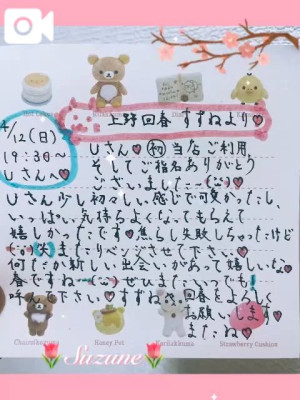 4/12(日)
19:30〜
Uさんへ♡
上野回春 すずねより♡
Uさん♡ 初 当店ご利用
そしてご指名ありがとう
ございました
Uさん少し初々しい感じで可愛かったし、
いっぱい気持ちよくなってもらえて
嬉しかったです♡焦らし失敗しちゃったけど
またリベンジさせて下さい♡
何だか新しい出会いがあって嬉しいな
春ですね ぜひまたいつでも
呼んで下さい♡すずね、回春をよろしく
お願いします
またね♡
Chairoikoguma
Honey Pot
Korilakkuma
Strawberry Cushion
Suzune